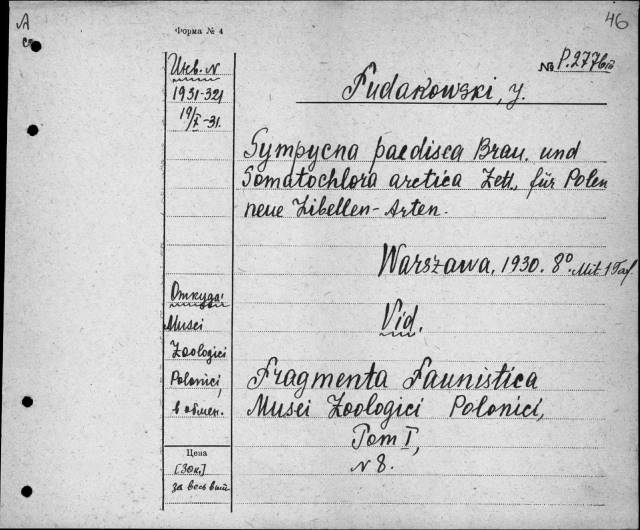 46
A
Форма № 4
Инв. №
1931-321
19/X-31.
№ P.277
Fudakowski, J.
Sympycna paedisca Brau. und
Somatochlora arctica Zett., für Polen
neue Libellen-Arten.
Warszawa, 1930. 8°. Mit 1 Taf.
Откуда:
Musei
Zoologici
Polonici,
в обмен.
Vid.
Fragmenta Faunistica
Musei Zoologici Polonici,
Tom I,
№ 8.
Цена
[30к.]
за весь вып.